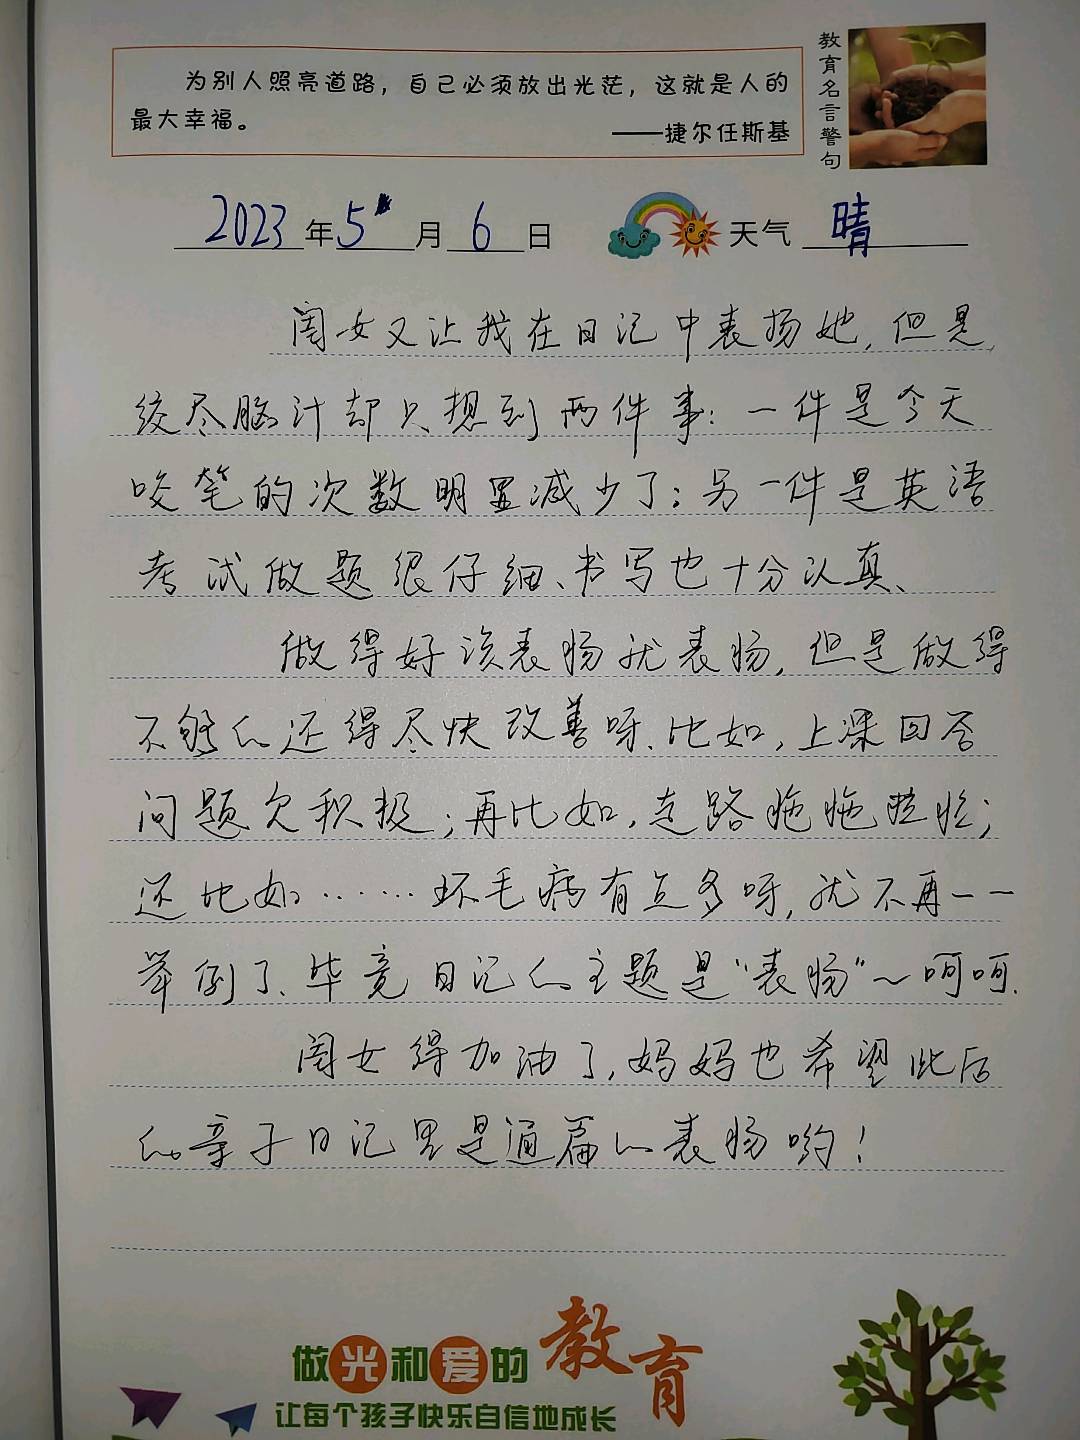 为别人照亮道路，自己必须放出光茫，这就是人的
最大幸福。
——捷尔任斯基
教育名言警句
2023年5月6日 天气 晴
闺女又让我在日记中表扬她，但是
绞尽脑汁却只想到两件事：一件是今天
咬笔的次数明显减少了；另一件是英语
考试做题很仔细、书写也十分认真、
做得好该表扬就表扬，但是做得
不够的还得尽快改善呀、比如，上课回答
问题欠积极；再比如，走路拖拖拉拉；
还比如……坏毛病有点多呀，就不再一一
举例了、毕竟日记的主题是“表扬”～呵呵、
闺女得加油了，妈妈也希望此后
的亲子日记里是通篇的表扬哟！
做光和爱的教育
让每个孩子快乐自信地成长